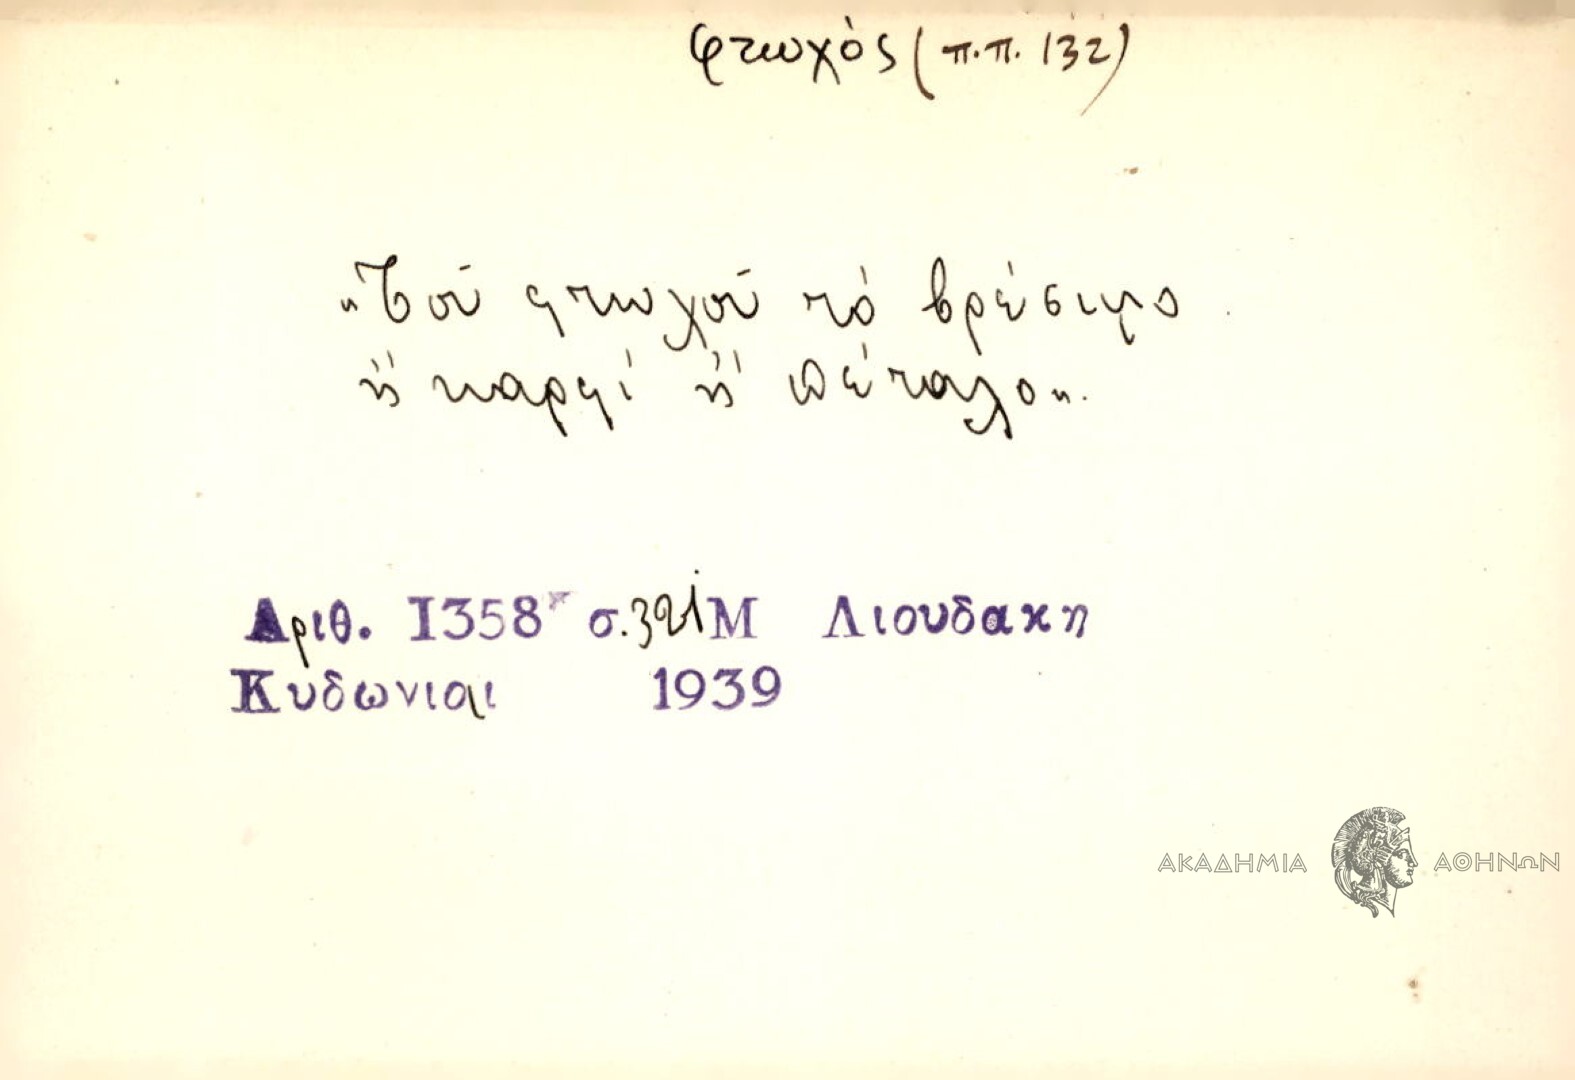 φτωχὸς (π.π. 132)
"Τοῦ φτωχοῦ τὸ βρέσιμο
ἢ καρφὶ ἢ πέταλο".
Αριθ. 1358 σ. 321 Μ Λιουδακη
Κυδωνιαι 1939
ΑΚΑΔΗΜΙΑ ΑΘΗΝΩΝ